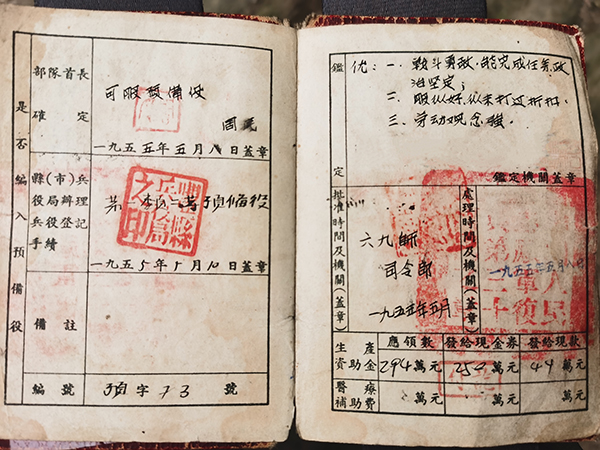 是否編入預備役
部隊首長
確定
可服預備役
一九五五年五月八日蓋章
縣(市)兵
役局辦理
兵役登記
手續
一九五5年5月10日蓋章
備註
編號
預字73號
鑑定
优:一、战斗勇敢,能完成任务,政
治坚定;
二、服从好,从未打过折扣.
三、劳动观念強.
鑑定機關蓋章
批准時間及機關(蓋章)
六九師
司令部
一九五五年五月
處理時間及機關(蓋章)
一九五五年五月八日
生產
資助金
應領數
發給現金券
發給現款
294萬元
250萬元
44萬元
醫療
補助費
萬元
萬元
萬元